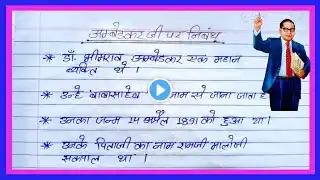 अम्बेडकर जी पर निबंध
* डॉ. भीमराव अम्बेडकर एक महान
व्यक्ति थे ।
* उन्हें बाबासाहेब नाम से जाना जाता है
* उनका जन्म 14 अप्रैल 1891 को हुआ था ।
* उनके पिताजी का नाम रामजी मालोजी
सकपाल था ।